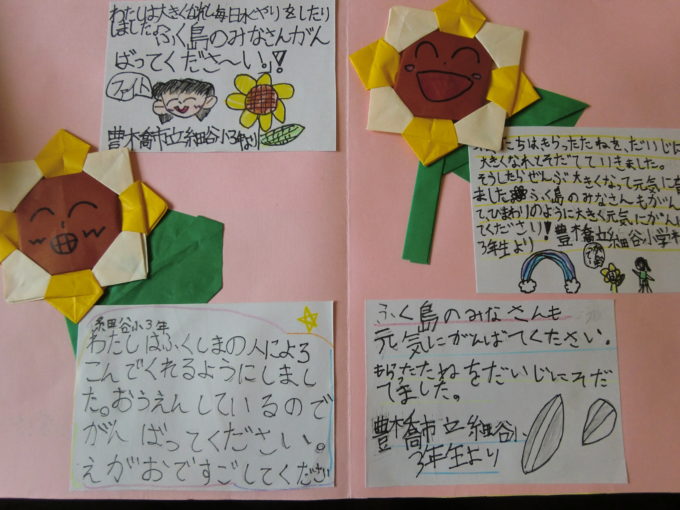 わたしは大きくなれし毎日水やりをしたり
しました。ふく島のみなさんがん
ばってくださ〜い。!
ファイト
豊木喬市立細谷小3年より
たちはもらったたねを、だいじに
大きくなれとそだてていきました。
そうしたらぜんぶ大きくなって元気に
ました ふく島のみなさんもがん
てひまわりのように大きく元気にがん
てください! 豊木喬立細谷小学
3年生より
細谷小3年
わたしはふくしまの人によろ
こんでくれるようにしまし
た。おうえんしているので
がんばってください。
えがおですごしてくださ
ふく島のみなさんも
元気にがんばてください。
もらったたねをだいじにそだ
てました。
豊木喬市立細谷小
3年生より